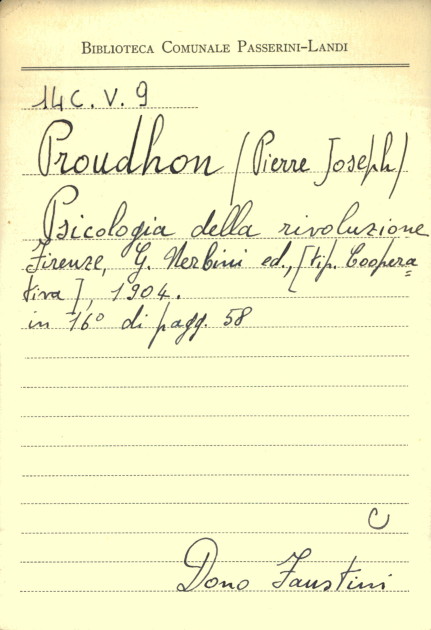 BIBLIOTECA COMUNALE PASSERINI-LANDI
14C. V. 9
Proudhon (Pierre Joseph)
Psicologia della rivoluzione
Firenze, G. Nerbini ed., [tip. Coopera=
tiva], 1904.
in 16° di pagg. 58
C
Dono Faustini